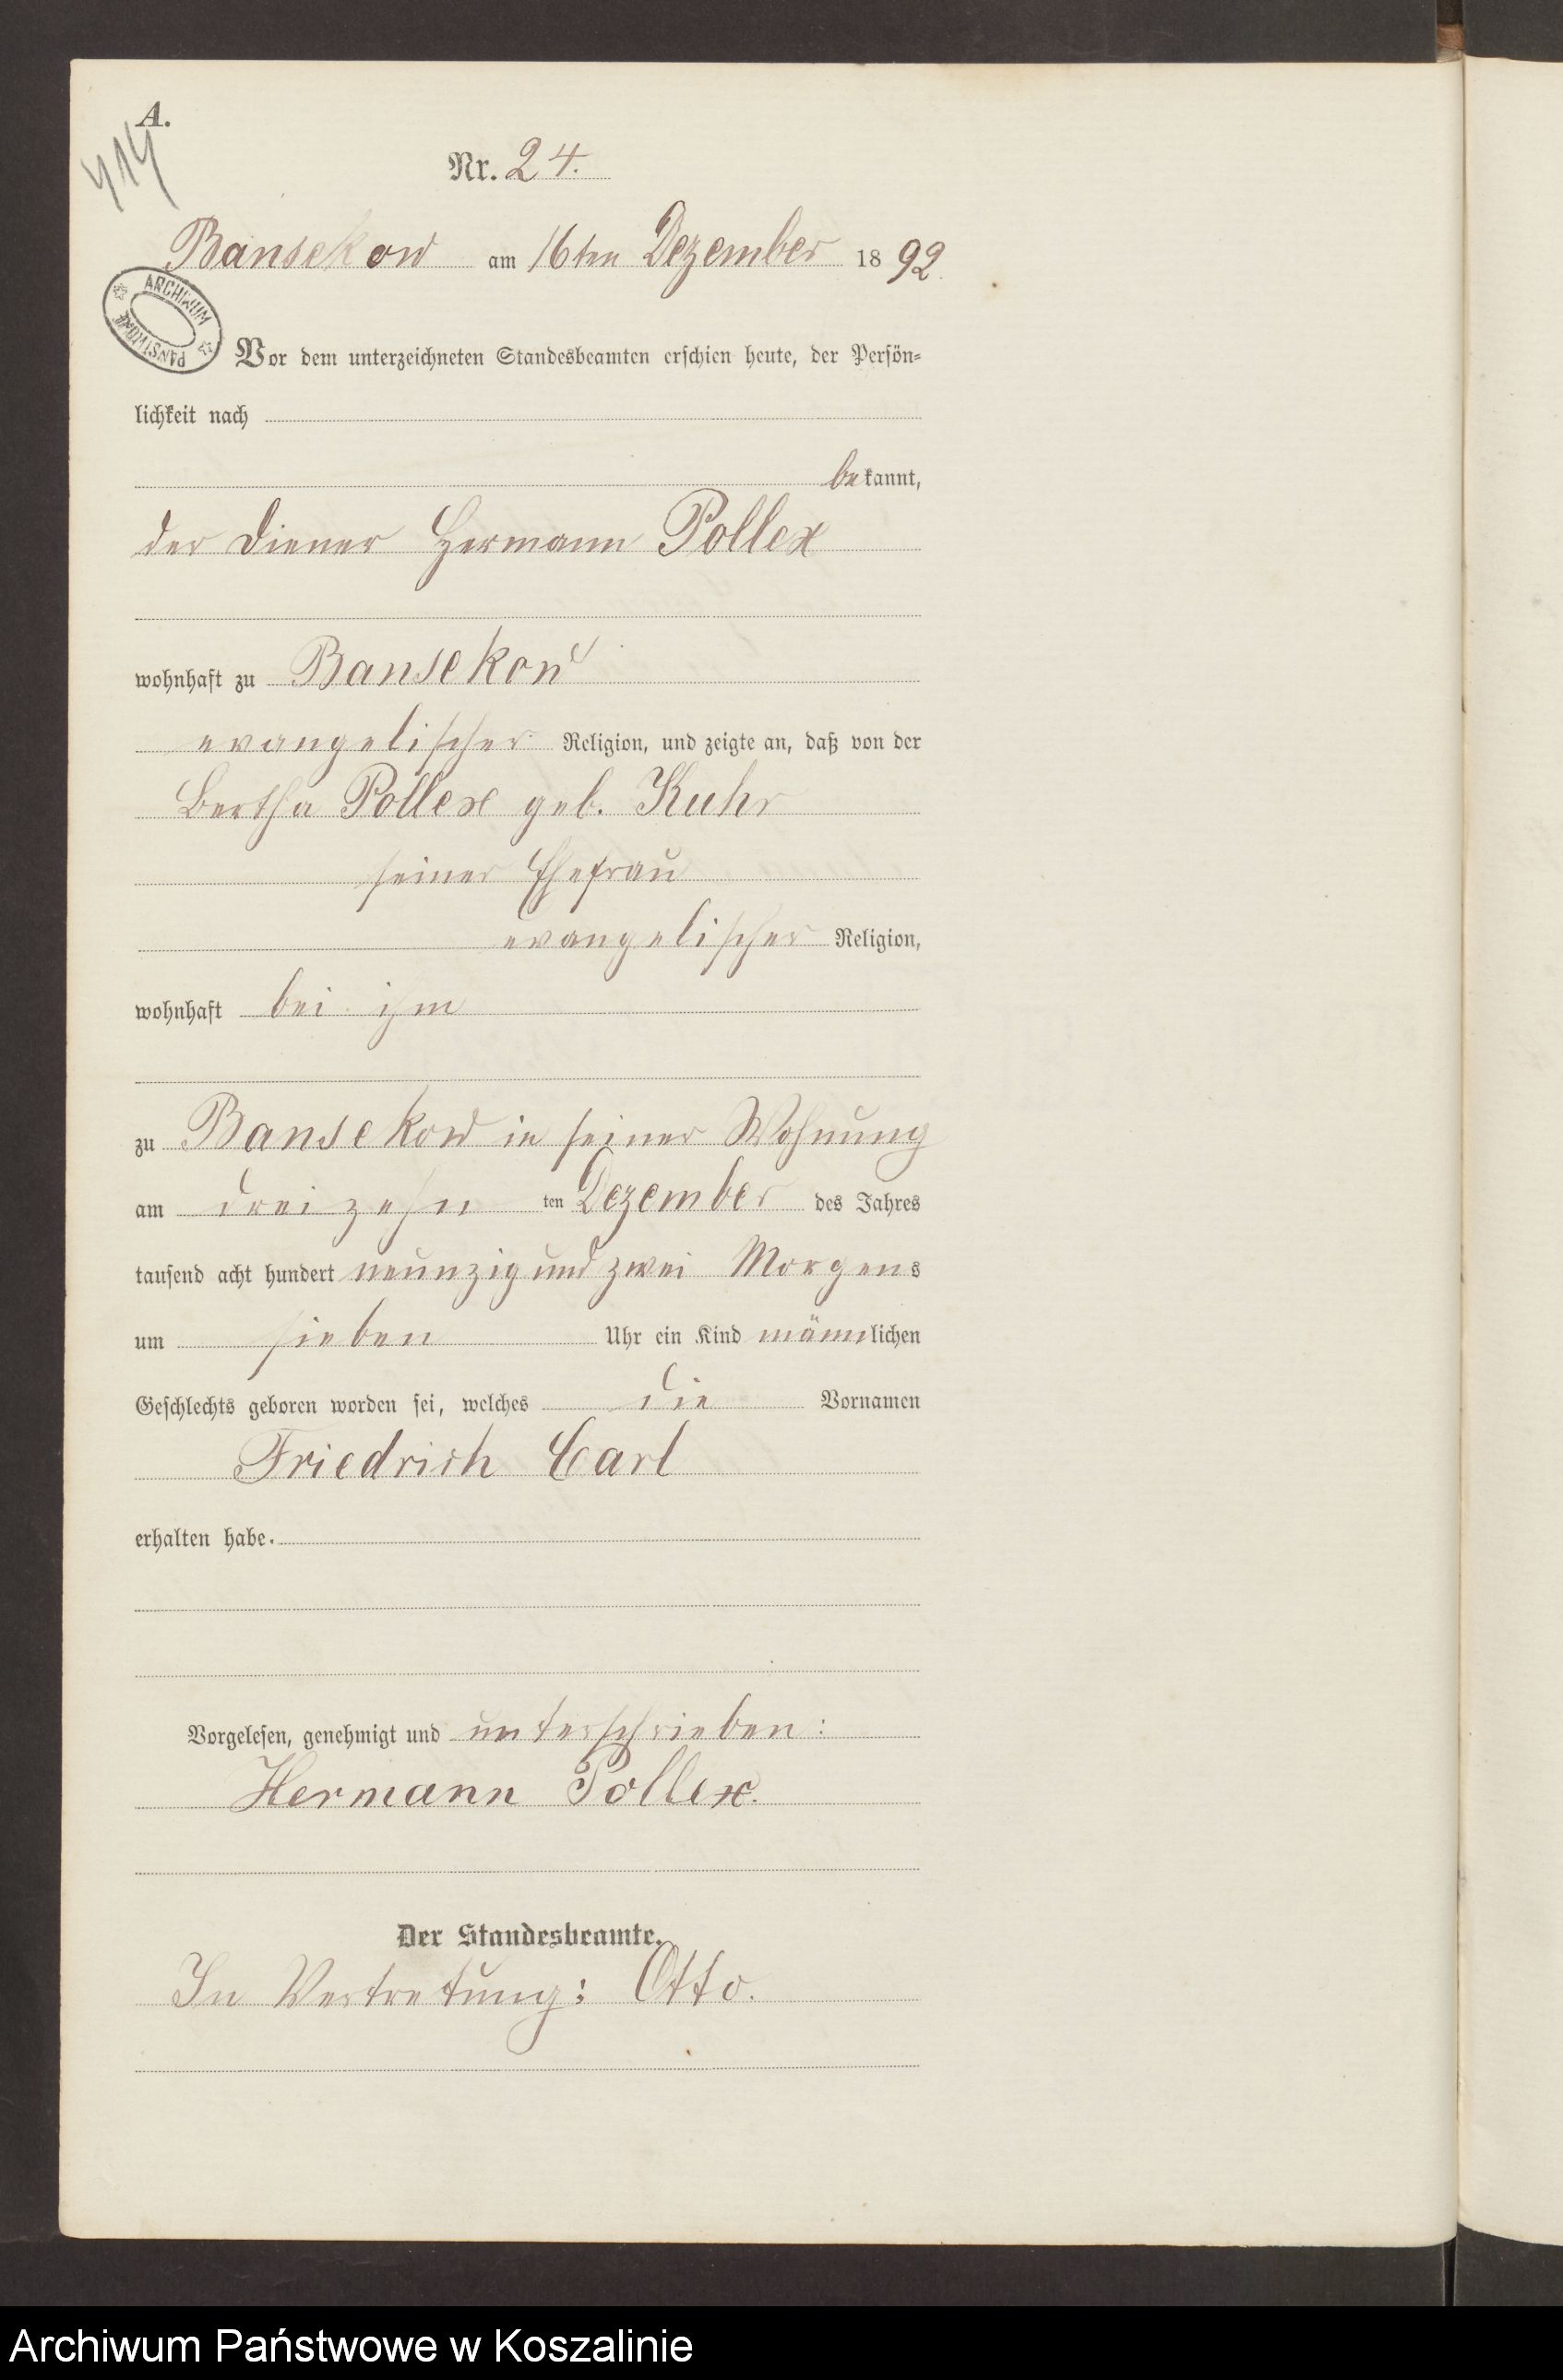 A.
414
Nr. 24.
Bansekow am 16ten Dezember 1892.
ARCHIWUM PAŃSTWOWE
Vor dem unterzeichneten Standesbeamten erschien heute, der Persön=
lichkeit nach
bekannt,
der Diener Hermann Pollex
wohnhaft zu Bansekow
evangelischer Religion, und zeigte an, daß von der
Bertha Pollex geb. Kuhr
seiner Ehefrau
evangelischer Religion,
wohnhaft bei ihm
zu Bansekow in seiner Wohnung
am dreizehn ten Dezember des Jahres
tausend acht hundert neunzig und zwei Morgens
um sieben Uhr ein Kind männlichen
Geschlechts geboren worden sei, welches die Vornamen
Friedrich Carl
erhalten habe.
Vorgelesen, genehmigt und unterschrieben:
Hermann Pollex.
Der Standesbeamte.
In Vertretung: Otto.
Archiwum Państwowe w Koszalinie